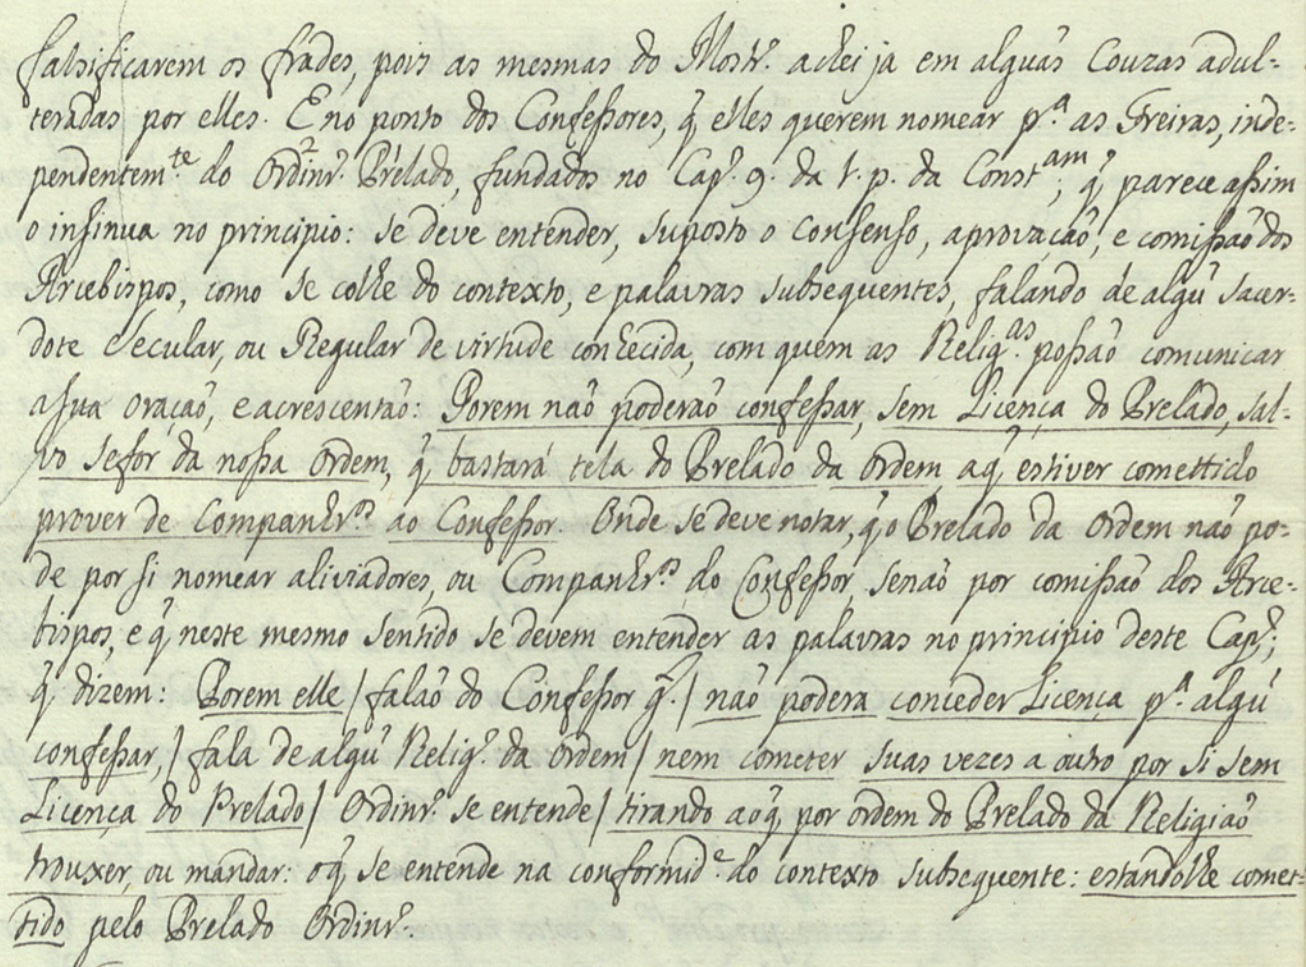 falsificarem os frades, pois as mesmas do Mostr.º achei ja em alguãs Couzas adul-
teradas por elles. E no ponto dos Confeßores, q̃ elles querem nomear p.ª as Freiras, inde-
pendentem.te do Ordinr.º Prelado, fundados no Cap.º 9. da 1. p. da Const.am; q̃ parece aßim
o insinua no principio: se deve entender, suposto o consenso, aprovação, e comißão dos
Arcebispos, como se colhe do contexto, e palavras subsequentes, falando de algũ sacer-
dote Secular, ou Regular de virtude conhecida, com quem as Relig.as poßão comunicar
a sua oração, e acrescentão: Porem não poderaõ confeßar, sem Licença do Prelado, sal-
vo se for da noßa Ordem, q̃ bastará tela do Prelado da Ordem a q̃ estiver comettido
prover de Companhr.os ao Confeßor. Onde se deve notar, q̃ o Prelado da Ordem não po-
de por si nomear aliviadores, ou Companhr.os do Confeßor, senão por comißão dos Arce-
bispos, e q̃ neste mesmo sentido se devem entender as palavras no principio deste Cap.º;
q̃ dizem: Porem elle / falaõ do Confeßor g.l / não podera conceder Licença p.ª algũ
confeßar, / fala de algũ Relig.º da Ordem / nem cometer suas vezes a outro por si sem
Licença do Prelado / Ordinr.º se entende / tirando ao q̃ por ordem do Prelado da Religiaõ
trouxer, ou mandar: o q̃ se entende na conformid.e do contexto subsequente: estandolhe comet-
tido pelo Prelado Ordinr.º.